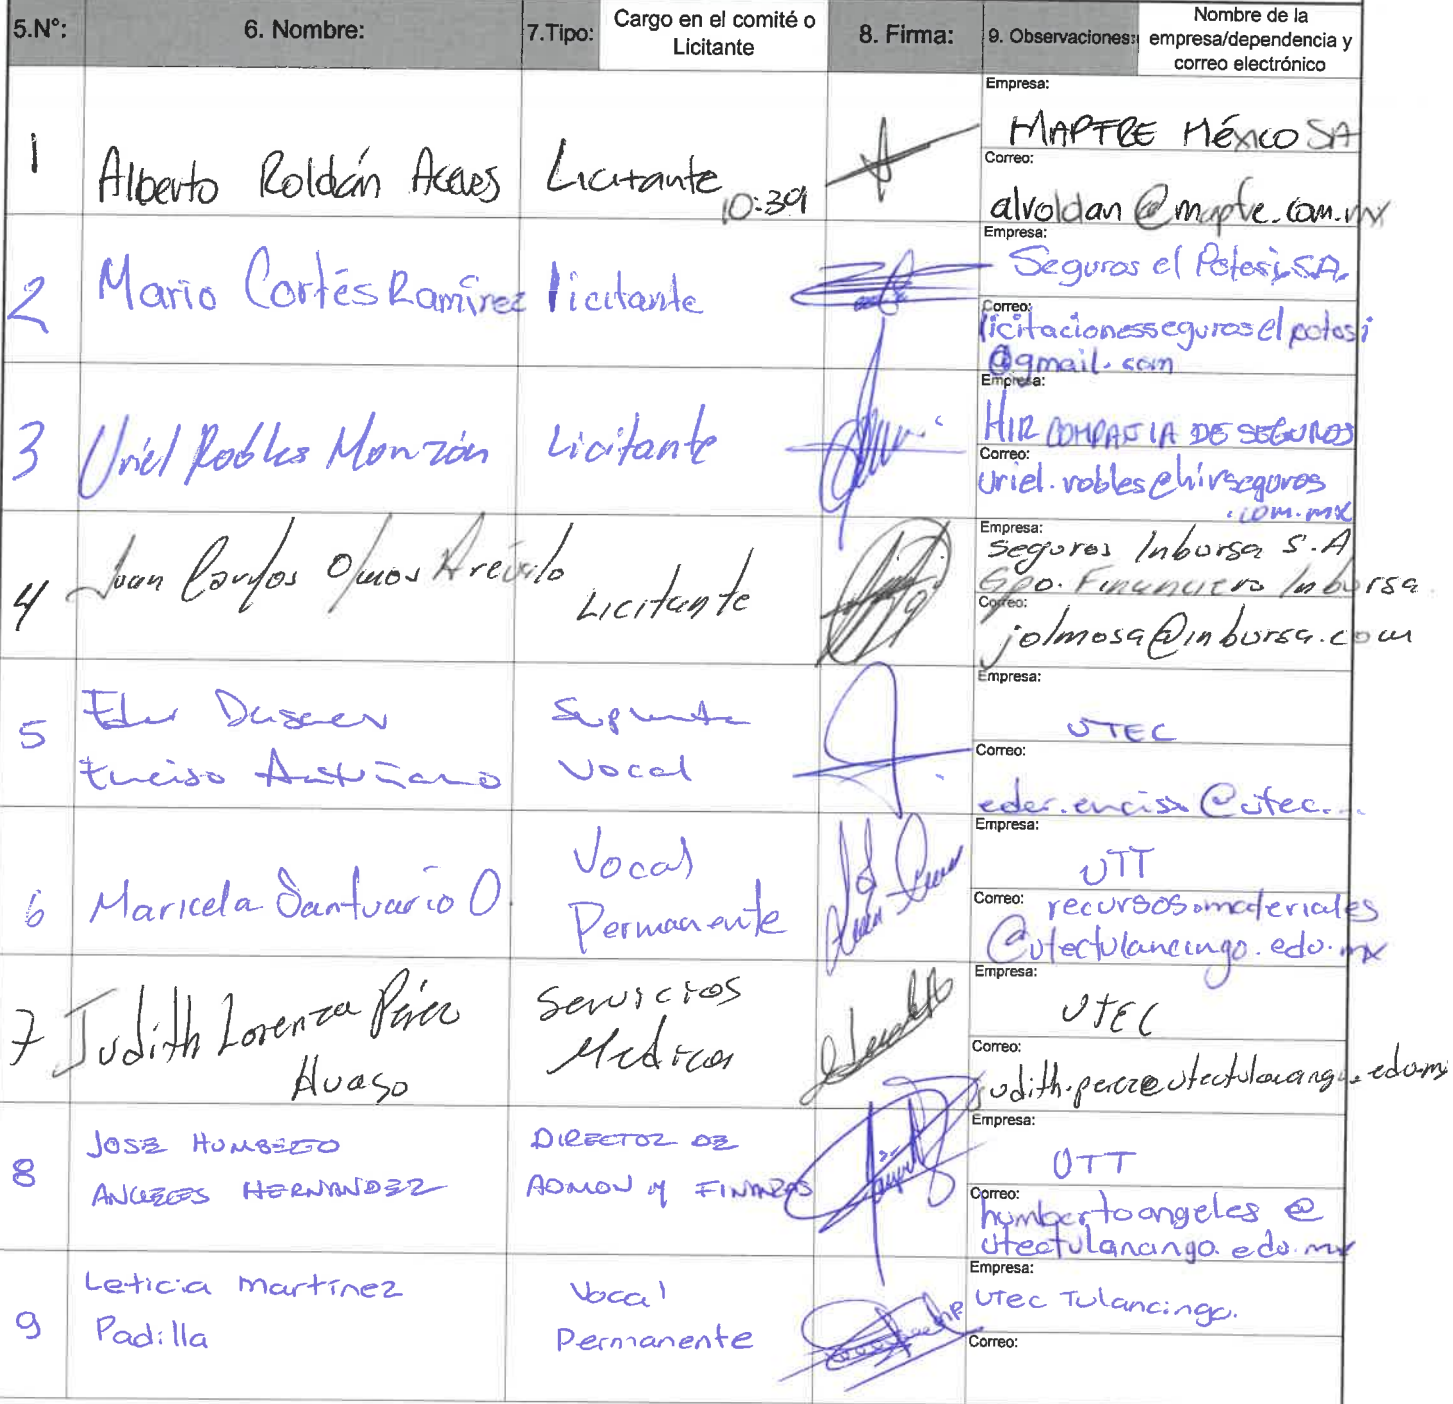 5.N°: 6. Nombre: 7.Tipo: Cargo en el comité o Licitante 8. Firma: 9. Observaciones: Nombre de la empresa/dependencia y correo electrónico
Empresa:
1 Alberto Roldán Aceves Licitante 10:39 MAPFRE México SA
Correo:
alroldan@mapfre.com.mx
Empresa:
2 Mario Cortés Ramírez licitante Seguros el Potosi, S.A.
Correo:
licitacionesseguroselpotosi
@gmail.com
Empresa:
3 Uriel Robles Monzón Licitante HIR COMPAÑIA DE SEGUROS
Correo:
uriel.robles@hirseguros
.com.mx
Empresa:
4 Juan Carlos Olmos Arévalo Licitante Seguros Inbursa S.A
Gpo. Financiero Inbursa.
Correo:
jolmosa@inbursa.com
Empresa:
5 Eder
Enciso Antuñano Suplente
Vocal UTEC
Correo:
eder.enciso@utec...
Empresa:
6 Maricela Santuario O. Vocal
Permanente UTT
Correo: recursos.materiales
@utectulancingo.edu.mx
Empresa:
7 Judith Lorenza Pérez
Huaso Servicios
Medicos UTEC
Correo:
judith.perez@utectulancingo.edu.mx
Empresa:
8 JOSE HUMBERTO
ANGELES HERNANDEZ DIRECTOR DE
ADMON Y FINANZAS UTT
Correo:
humbertoangeles@
utectulancingo.edu.mx
Empresa:
9 Leticia martínez
Padilla Vocal
Permanente UTec Tulancingo.
Correo: